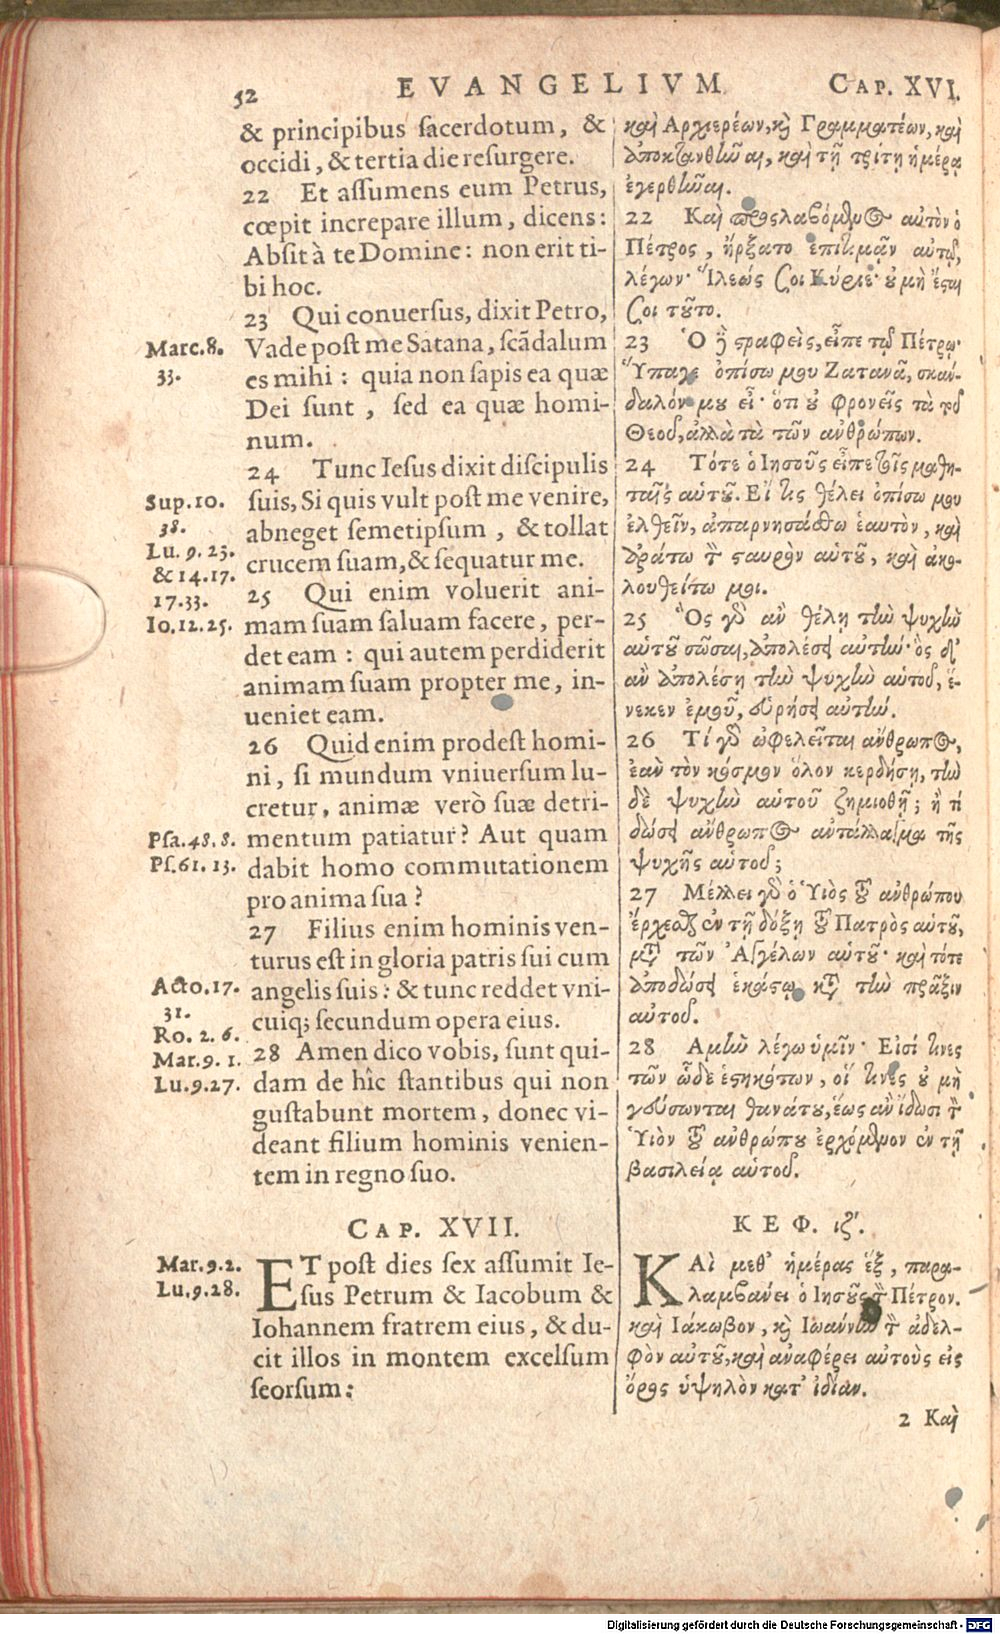 52 EVANGELIVM CAP. XVI.
& principibus ſacerdotum, &
occidi, & tertia die reſurgere.
22 Et aſſumens eum Petrus,
cœpit increpare illum, dicens:
Abſit à te Domine: non erit ti-
bi hoc.
23 Qui conuerſus, dixit Petro,
Vade poſt me Satana, ſcãdalum
es mihi: quia non ſapis ea quæ
Dei ſunt, ſed ea quæ homi-
num.
24 Tunc Ieſus dixit diſcipulis
ſuis, Si quis vult poſt me venire,
abneget ſemetipſum, & tollat
crucem ſuam, & ſequatur me.
25 Qui enim voluerit ani-
mam ſuam ſaluam facere, per-
det eam: qui autem perdiderit
animam ſuam propter me, in-
ueniet eam.
26 Quid enim prodeſt homi-
ni, ſi mundum vniuerſum lu-
cretur, animæ verò ſuæ detri-
mentum patiatur? Aut quam
dabit homo commutationem
pro anima ſua?
27 Filius enim hominis ven-
turus eſt in gloria patris ſui cum
angelis ſuis: & tunc reddet vni-
cuiq; ſecundum opera eius.
28 Amen dico vobis, ſunt qui-
dam de hîc ſtantibus qui non
guſtabunt mortem, donec vi-
deant filium hominis venien-
tem in regno ſuo.
CAP. XVII.
ET poſt dies ſex aſſumit Ie-
ſus Petrum & Iacobum &
Iohannem fratrem eius, & du-
cit illos in montem excelſum
ſeorſum:
Marc.8.
33.
Sup.10.
38.
Lu. 9. 23.
& 14.17.
17.33.
Io.12.25.
Pſa.48.8.
Pſ.61. 13.
Acto.17.
31.
Ro. 2. 6.
Mar.9. 1.
Lu.9.27.
Mar.9.2.
Lu.9.28.
καὶ Ἀρχιερέων, καὶ Γραμματέων, καὶ
ἀποκτανθῆναι, καὶ τῇ τρίτῃ ἡμέρᾳ
ἐγερθῆναι.
22 Καὶ προσλαβόμενος αὐτὸν ὁ
Πέτρος, ἤρξατο ἐπιτιμᾷν αὐτῷ,
λέγων· Ἵλεώς σοι Κύριε· οὐ μὴ ἔσται
σοι τοῦτο.
23 Ὁ δὲ στραφεὶς, εἶπε τῷ Πέτρῳ·
Ὕπαγε ὀπίσω μου Σατανᾶ, σκάν-
δαλόν μου εἶ· ὅτι οὐ φρονεῖς τὰ τοῦ
Θεοῦ, ἀλλὰ τὰ τῶν ἀνθρώπων.
24 Τότε ὁ Ἰησοῦς εἶπε τοῖς μαθη-
ταῖς αὑτοῦ. Εἴ τις θέλει ὀπίσω μου
ἐλθεῖν, ἀπαρνησάσθω ἑαυτὸν, καὶ
ἀράτω τὸν σταυρὸν αὑτοῦ, καὶ ἀκο-
λουθείτω μοι.
25 Ὃς γὰρ ἂν θέλῃ τὴν ψυχὴν
αὑτοῦ σῶσαι, ἀπολέσει αὐτήν· ὃς δ'
ἂν ἀπολέσῃ τὴν ψυχὴν αὑτοῦ, ἕ-
νεκεν ἐμοῦ, εὑρήσει αὐτήν.
26 Τί γὰρ ὠφελεῖται ἄνθρωπος,
ἐὰν τὸν κόσμον ὅλον κερδήσῃ, τὴν
δὲ ψυχὴν αὑτοῦ ζημιοθῇ; ἢ τί
δώσει ἄνθρωπος ἀντάλλαγμα τῆς
ψυχῆς αὑτοῦ;
27 Μέλλει γὰρ ὁ Ὑιὸς τοῦ ἀνθρώπου
ἔρχεσθαι ἐν τῇ δόξῃ τοῦ Πατρὸς αὑτοῦ,
μετὰ τῶν Ἀγγέλων αὑτοῦ· καὶ τότε
ἀποδώσει ἑκάστῳ κατὰ τὴν πρᾶξιν
αὐτοῦ.
28 Ἀμὴν λέγω ὑμῖν· Εἰσί τινες
τῶν ὧδε ἑστηκότων, οἵ τινες οὐ μὴ
γεύσωνται θανάτου, ἕως ἂν ἴδωσι τὸν
Ὑιὸν τοῦ ἀνθρώπου ἐρχόμενον ἐν τῇ
βασιλείᾳ αὑτοῦ.
ΚΕΦ. ιζʹ.
ΚΑὶ μεθ' ἡμέρας ἓξ, παρα-
λαμβάνει ὁ Ἰησοῦς τὸν Πέτρον.
καὶ Ἰάκωβον, καὶ Ἰωάννην τὸν ἀδελ-
φὸν αὐτοῦ, καὶ ἀναφέρει αὐτοὺς εἰς
ὄρος ὑψηλὸν κατ' ἰδίαν.
2 Καὶ
Digitalisierung gefördert durch die Deutsche Forschungsgemeinschaft - DFG